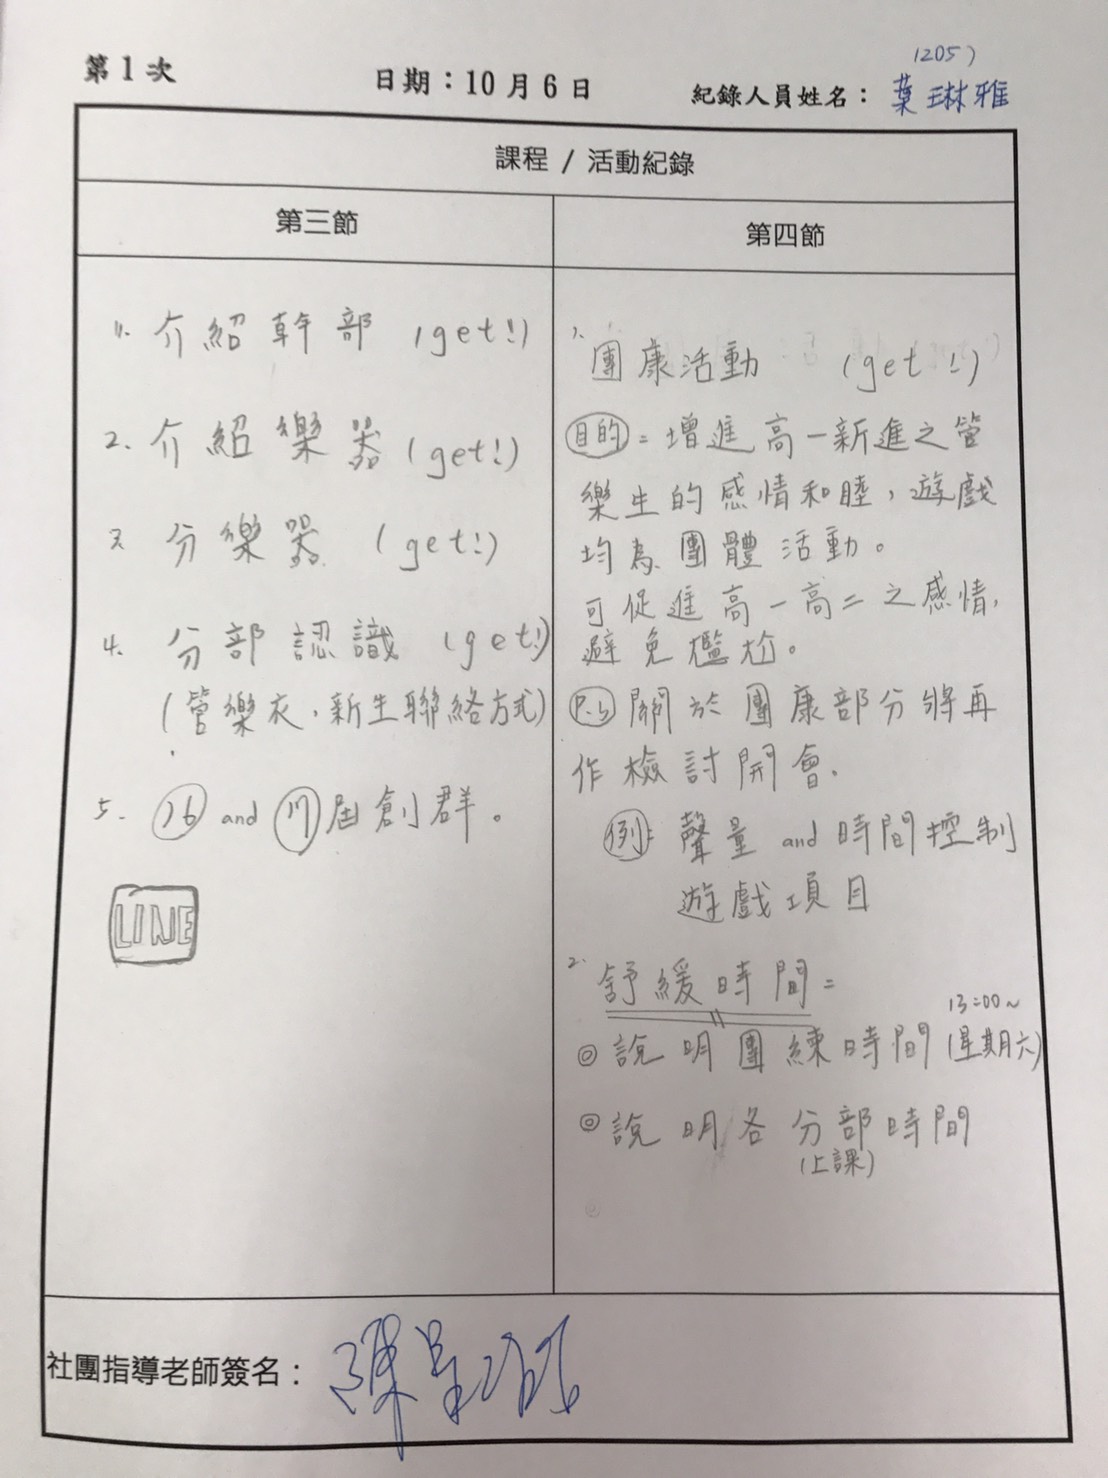 第1次
日期：10月6日
(205)
紀錄人員姓名：葉琳雅
課程 / 活動紀錄
第三節
1. 介紹幹部 (get!)
2. 介紹樂器 (get!)
3. 分樂器 (get!)
4. 分部認識 (get!)
(管樂衣、新生聯絡方式)
5. 16 and 17屆創群。
LINE
第四節
1. 團康活動 (get!)
目的=增進高一新進之管
樂生的感情和睦，遊戲
均為團體活動。
可促進高一高二之感情，
避免尷尬。
P.S 關於團康部分將再
作檢討開會.
例: 聲量 and 時間控制
遊戲項目
2. 舒緩時間=
13:00~
◎說明團練時間 (星期六)
◎說明各分部時間
(上課)
社團指導老師簽名：